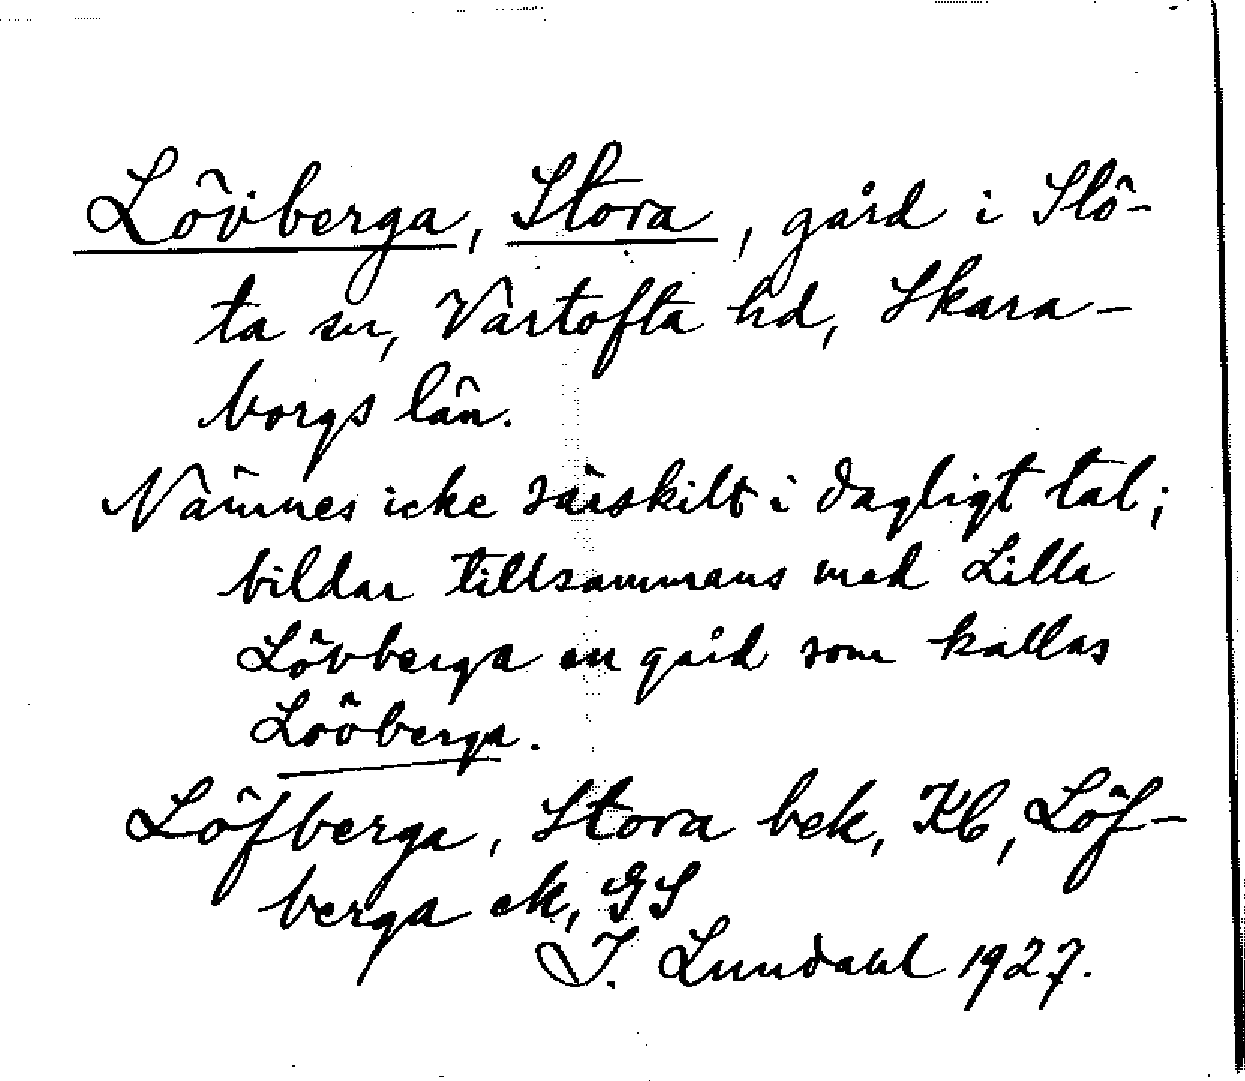 Lövberga, Stora, gård i Slö-
ta sn, Vartofta hd, Skara-
borgs län.
Nämnes icke särskilt i dagligt tal;
bildar tillsammans med Lilla
Lövberga en gård som kallas
Lööberga.
Löfberga, Stora bek, Kb, Löf-
berga ek, GS
I. Lundahl 1927.